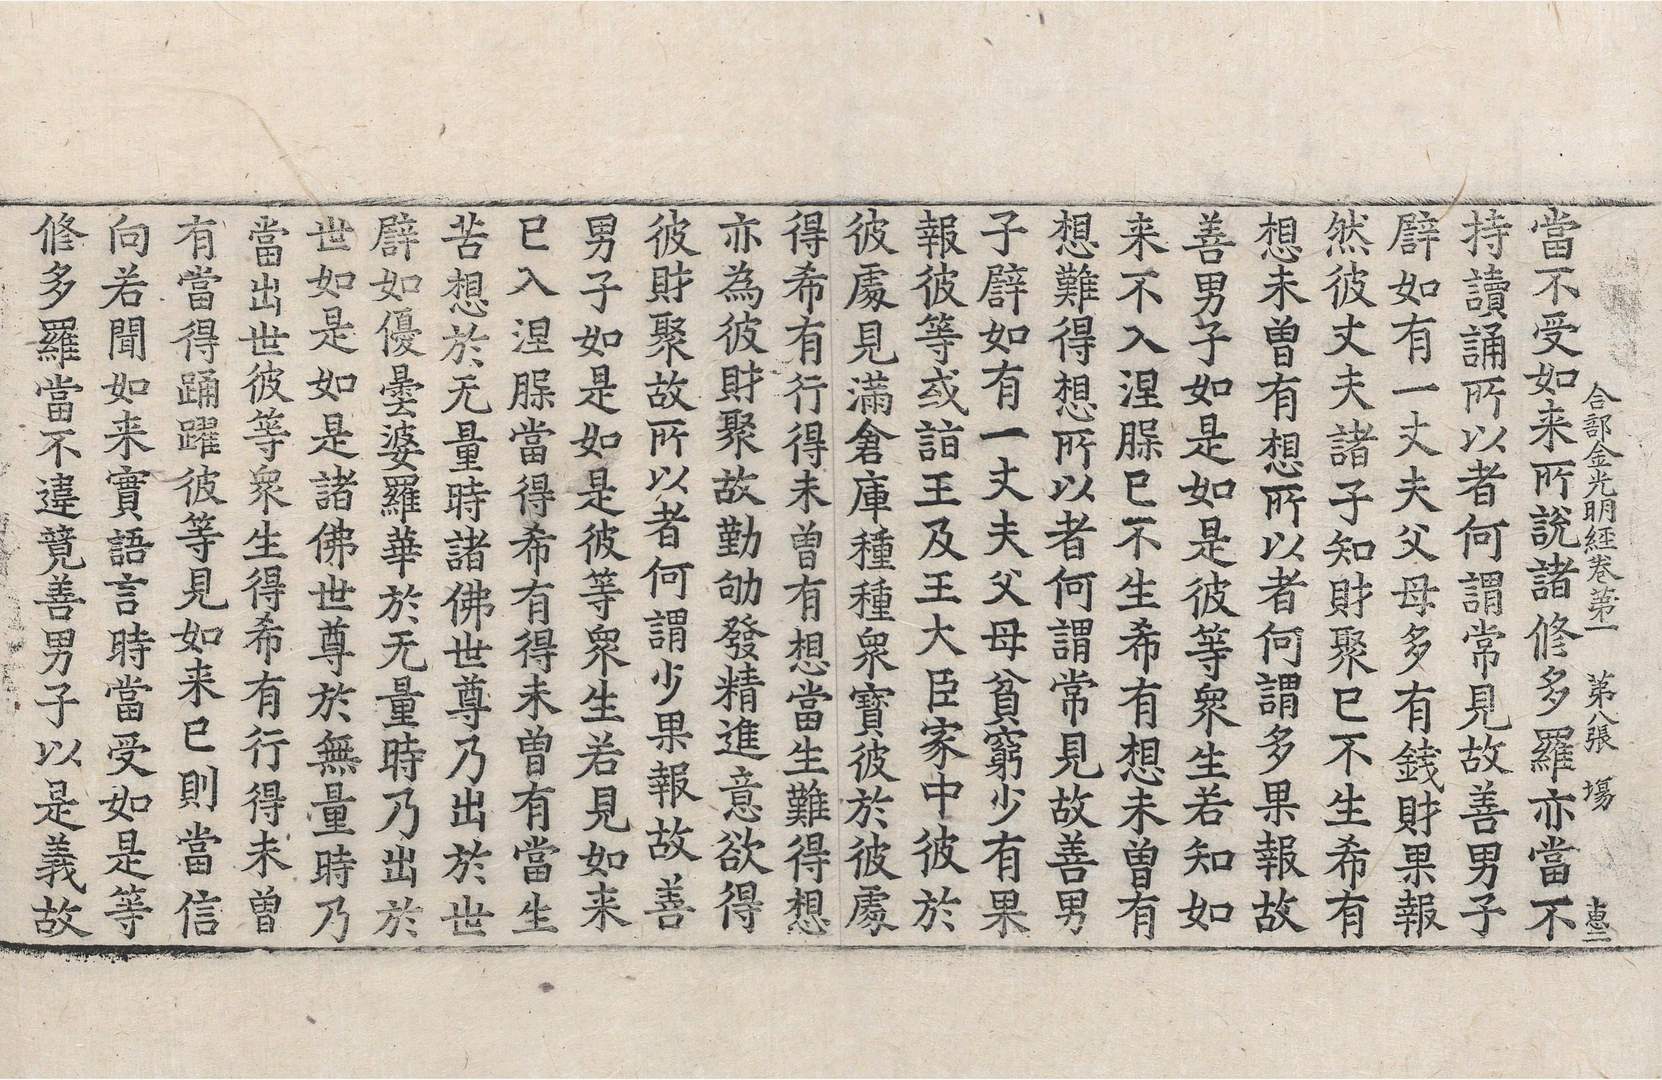 合部金光明経卷第一 第八張 惠二
當不受如来所說諸修多羅亦當不
持讀誦所以者何謂常見故善男子
譬如有一丈夫父母多有錢財果報
然彼丈夫諸子知財聚已不生希有
想未曾有想所以者何謂多果報故
善男子如是如是彼等衆生若知如
来不入涅脲已不生希有想未曾有
想難得想所以者何謂常見故善男
子譬如有一丈夫父母貧窮少有果
報彼等或詣王及王大臣家中彼於
彼處見滿倉庫種種衆寶彼於彼處
得希有行得未曾有想當生難得想
亦為彼財聚故勤劬發精進意欲得
彼財聚故所以者何謂少果報故善
男子如是如是彼等衆生若見如来
已入涅脲當得希有得未曾有當生
苦想於无量時諸佛世尊乃出於世
譬如優曇婆羅華於无量時乃出於
世如是如是諸佛世尊於無量時乃
當出世彼等衆生得希有行得未曾
有當得踊躍彼等見如来已則當信
向若聞如来實語言時當受如是等
修多羅當不違竟善男子以是義故